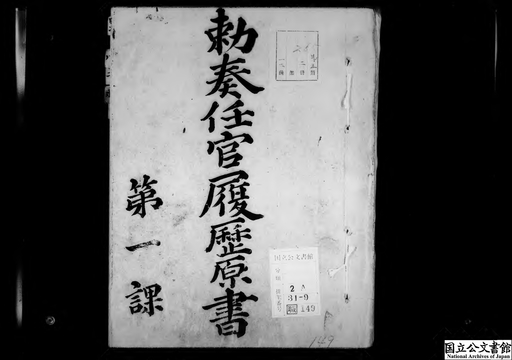 勅奏任官履歴原書
第一課
国立公文書館
2 A
31-9
149
149
国立公文書館
National Archives of Japan